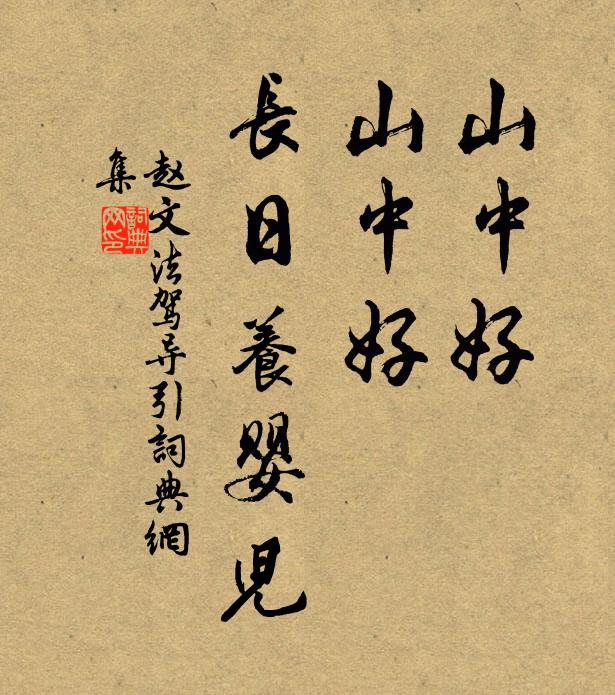 山中好
山中好
長日養嬰兒
赵文法驾导引詞典網
集
詞典
网印